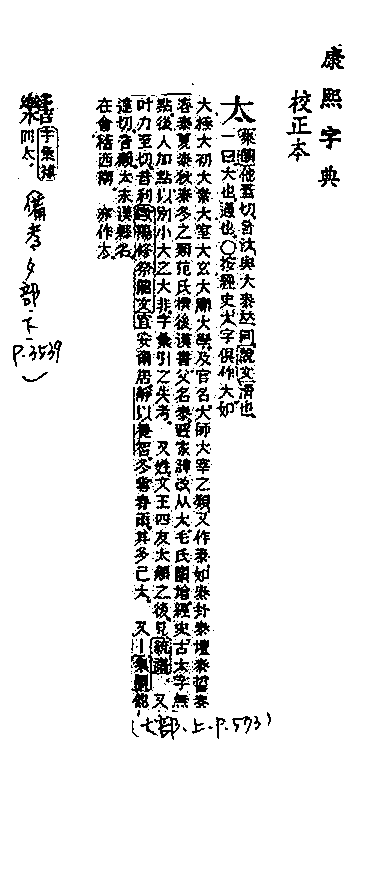 康熙字典
校正本
太 集韻他蓋切音汰與大泰𠀤同說文滑也
一曰大也通也〇按經史太字俱作大如
大極大初大素大室大玄大廟大學及官名大師大宰之類又作泰如泰卦泰壇泰誓泰
春泰夏泰秋泰冬之類范氏撰後漢書父名泰避家諱改从太毛氏韻增經史古太字無
點後人加點以別小大之大非字彙引之失考。又姓文王四友太顚之後見統譜。又
叶力至切音利歐陽修祭龍文宜安爾居靜以養智冬雪春雨其多已太。又丨集韻他
達切音闥太末漢縣名
在會稽西南。亦作大
(大部.上.P.573)
字彙補
同太。
(備考夕部.下.
P.3539
)